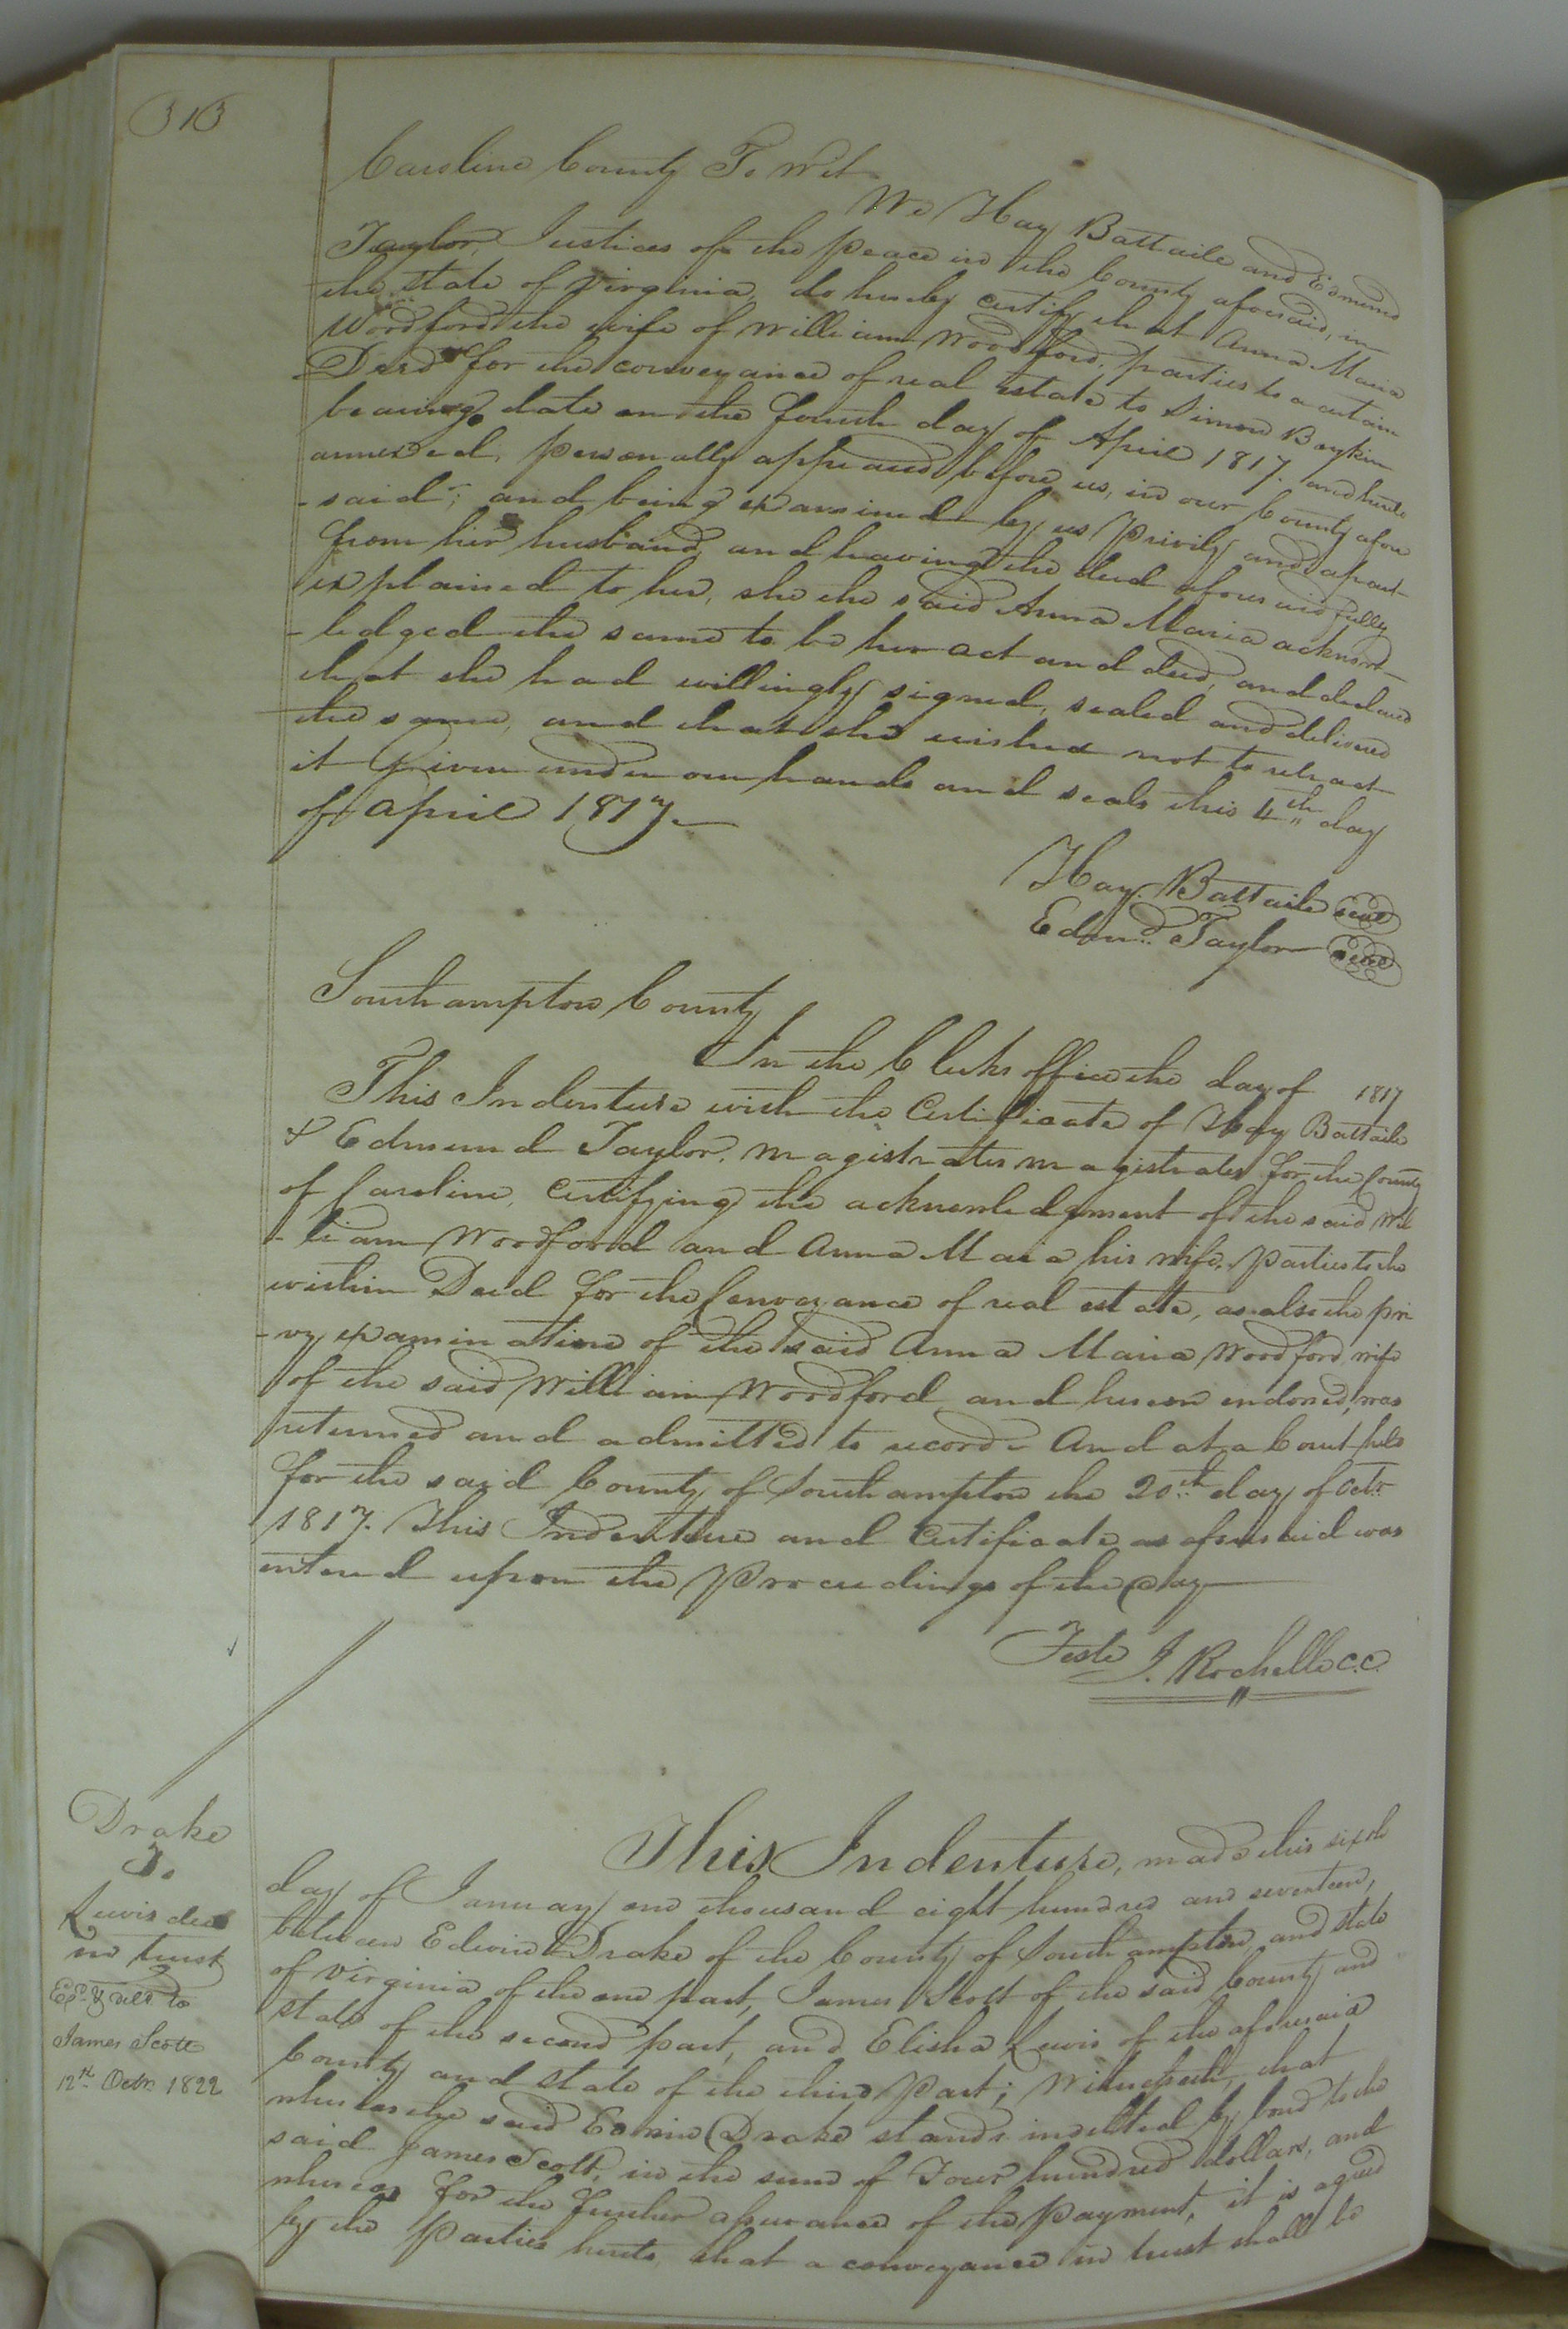 313
Caroline County To Wit
We Hay Battaile and Edmund
Taylor, Justices of the peace in the County aforesaid, in
the State of Virginia, do hereby certify that Anna Maria
Woodford the wife of William Woodford, parties to a certain
Deed for the conveyance of real estate to Simon Boykin
bearing date on the fourth day of April 1817. and hereto
annexed, personally appeared before us, in our County afore
-said; and being examined by us privily and apart
from her husband, and having the deed aforesaid fully
explained to her, she the said Anna Maria acknow-
-ledged the same to be her act and deed, and declared
that she had willingly signed, sealed and delivered
the same, and that she wished not to retract
it Given under our hands and seals this 4th day
of April 1817.
Hay. Battaile seal
Edmd. Taylor seal
Southampton County
In the Clerks office the day of 1817
This Indenture with the Certificate of Hay Battaile
& Edmund Taylor, magistrates magistrates for the County
of Caroline, certifying the acknowledgment of the said Wil
-liam Woodford and Anna Maria his wife, parties to the
within Deed for the Conveyance of real estate, as also the pri
-vy examination of the said Anna Maria Woodford, wife
of the said William Woodford and hereon endorsed, was
returned and admitted to record. And at a Court held
for the said County of Southampton the 20th day of Octr
1817. This Indenture and Certificate as aforesaid was
entered upon the Proceedings of the day
Teste J. Rochelle C.C.
Drake
To
Lewis deed
in trust
Ex.d & del to
James Scott
12th Octr. 1822
This Indenture, made this sixth
day of January one thousand eight hundred and seventeen,
between Edwin Drake of the County of Southampton and state
of Virginia of the one part, James Scott of the said County and
state of the second part, and Elisha Lewis of the aforesaid
County and state of the third part; Witnesseth, that
whereas the said Edwin Drake stands indebted by bond to the
said James Scott, in the sum of Four hundred dollars, and
whereas for the further assurance of the payment, it is agreed
by the parties hereto, that a conveyance in trust shall be